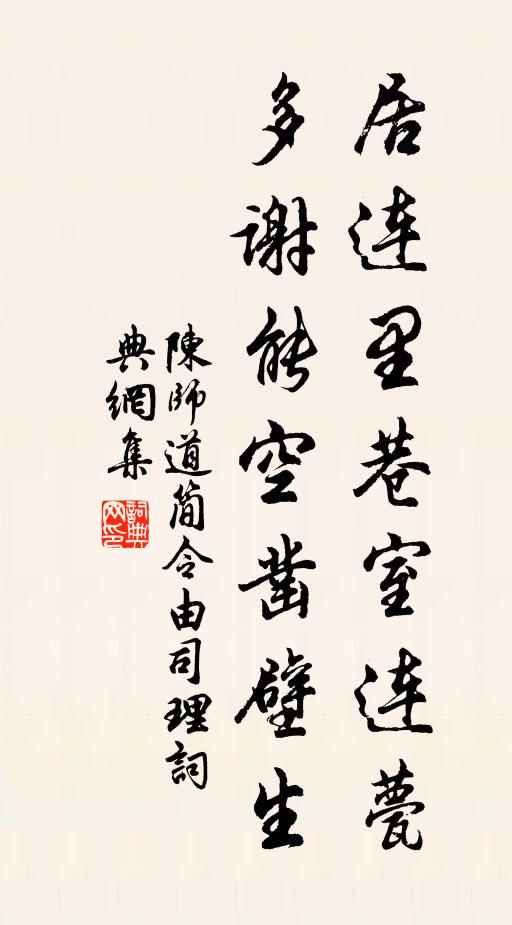 居連里巷室連甍
多謝能空凿壁生
陳師道简令由司理詞
典網集
詞典网印